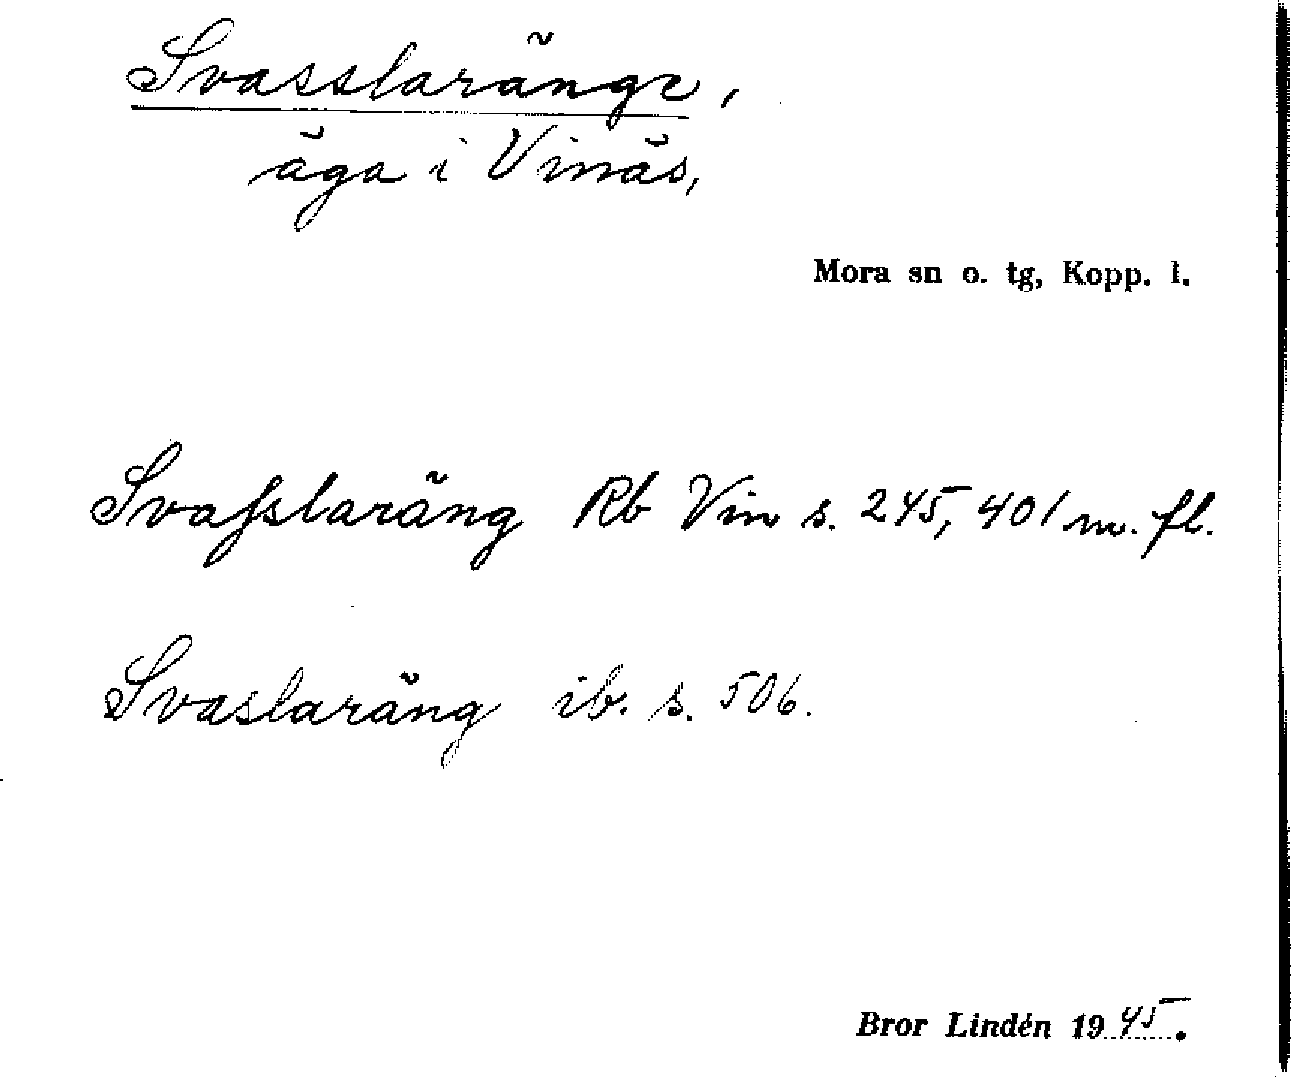 Svasslaränge,
äga i Vinäs,
Mora sn o. tg, Kopp. l.
Svaſslaräng Rb Vin s. 245, 401 m. fl.
Svaslaräng ib. s. 506.
Bror Lindén 1945.